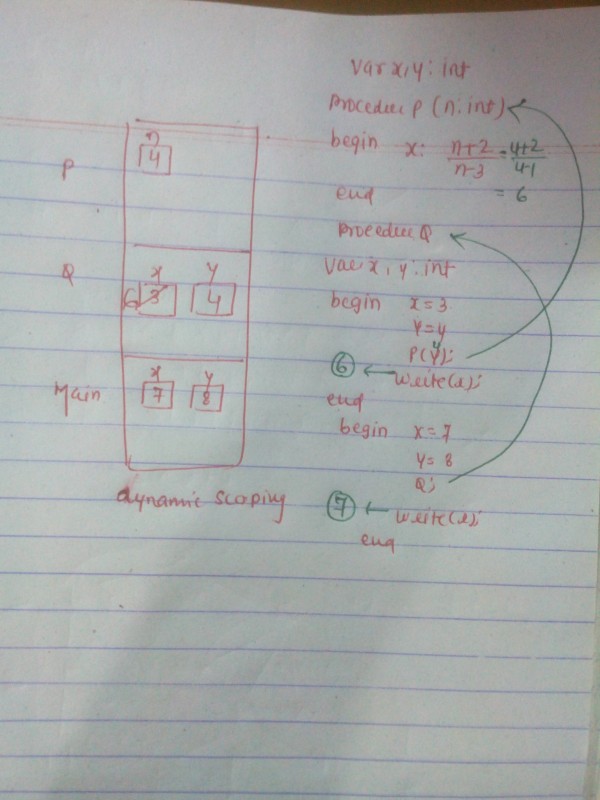 Var x, y : int
Procedure P (n: int)
begin x: n+2/n-3 = 4+2/4-1
end = 6
procedure Q
Var x, y : int
begin x = 3
Y = 4
P(Y); 4
6 ← write(x);
end
begin x = 7
Y = 8
Q;
7 ← write(x);
end
n
P 4
x y
Q 6 3 4
x y
Main 7 8
dynamic scoping